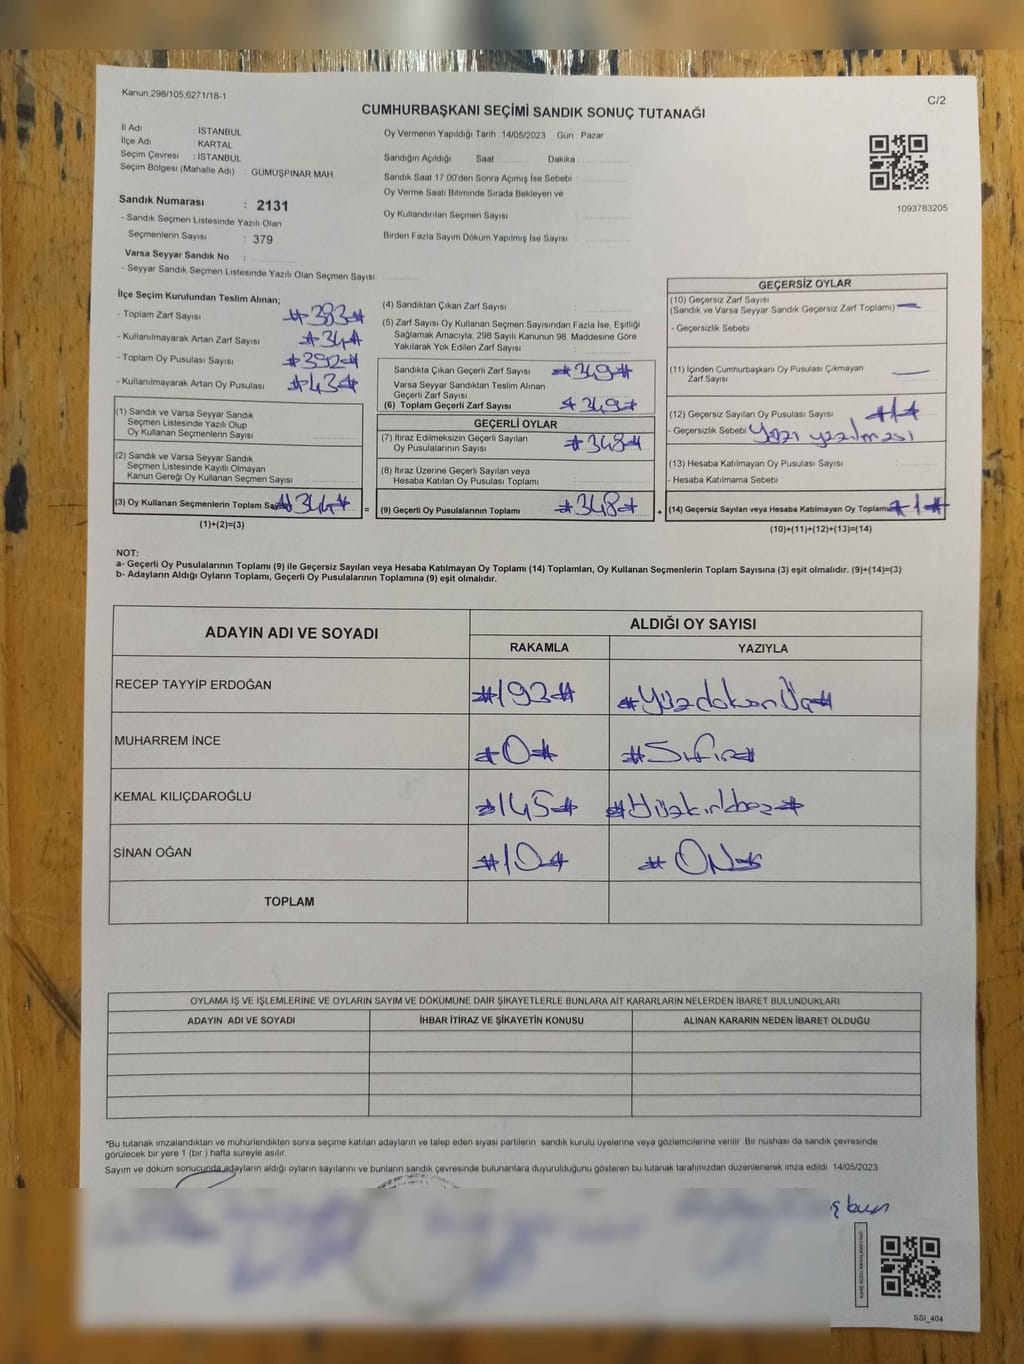 Kanun:298/105,6271/18-1
C/2
CUMHURBAŞKANI SEÇİMİ SANDIK SONUÇ TUTANAĞI
İl Adı İSTANBUL
İlçe Adı KARTAL
Seçim Çevresi : İSTANBUL
Seçim Bölgesi (Mahalle Adı) : GÜMÜŞPINAR MAH.
Oy Vermenin Yapıldığı Tarih : 14/05/2023 Gün : Pazar
Sandığın Açıldığı Saat Dakika
Sandık Saat 17:00'den Sonra Açımış İse Sebebi :
Oy Verme Saati Bitiminde Sırada Bekleyen ve
Oy Kullandırılan Seçmen Sayısı
Birden Fazla Sayım Döküm Yapılmış İse Sayısı
1093783205
Sandık Numarası : 2131
- Sandık Seçmen Listesinde Yazılı Olan
Seçmenlerin Sayısı : 379
Varsa Seyyar Sandık No :
- Seyyar Sandık Seçmen Listesinde Yazılı Olan Seçmen Sayısı
İlçe Seçim Kurulundan Teslim Alınan;
- Toplam Zarf Sayısı #383#
- Kullanılmayarak Artan Zarf Sayısı #34#
- Toplam Oy Pusulası Sayısı #392#
- Kullanılmayarak Artan Oy Pusulası #43#
(1) Sandık ve Varsa Seyyar Sandık
Seçmen Listesinde Yazılı Olup
Oy Kullanan Seçmenlerin Sayısı
(2) Sandık ve Varsa Seyyar Sandık
Seçmen Listesinde Kayıtlı Olmayan
Kanun Gereği Oy Kullanan Seçmen Sayısı
(3) Oy Kullanan Seçmenlerin Toplam
(1)+(2)=(3)
(4) Sandıktan Çıkan Zarf Sayısı
(5) Zarf Sayısı Oy Kullanan Seçmen Sayısından Fazla İse, Eşitliği
Sağlamak Amacıyla, 298 Sayılı Kanunun 98. Maddesine Göre
Yakılarak Yok Edilen Zarf Sayısı
Sandıkta Çıkan Geçerli Zarf Sayısı #349#
Varsa Seyyar Sandıktan Teslim Alınan
Geçerli Zarf Sayısı
(6) Toplam Geçerli Zarf Sayısı #349#
GEÇERLİ OYLAR
(7) İtiraz Edilmeksizin Geçerli Sayılan
Oy Pusulalarının Sayısı #348#
(8) İtiraz Üzerine Geçerli Sayılan veya
Hesaba Katılan Oy Pusulası Toplamı
= (9) Geçerli Oy Pusulalarının Toplamı #348# +
GEÇERSİZ OYLAR
(10) Geçersiz Zarf Sayısı
(Sandık ve Varsa Seyyar Sandık Geçersiz Zarf Toplamı) —
- Geçersizlik Sebebi
(11) İçinden Cumhurbaşkanı Oy Pusulası Çıkmayan
Zarf Sayısı —
(12) Geçersiz Sayılan Oy Pusulası Sayısı #1#
- Geçersizlik Sebebi Yazı yazılması
(13) Hesaba Katılmayan Oy Pusulası Sayısı
- Hesaba Katılmama Sebebi
(14) Geçersiz Sayılan veya Hesaba Katılmayan Oy Toplamı #1#
(10)+(11)+(12)+(13)=(14)
NOT:
a- Geçerli Oy Pusulalarının Toplamı (9) ile Geçersiz Sayılan veya Hesaba Katılmayan Oy Toplamı (14) Toplamları, Oy Kullanan Seçmenlerin Toplam Sayısına (3) eşit olmalıdır. (9)+(14)=(3)
b- Adayların Aldığı Oyların Toplamı, Geçerli Oy Pusulalarının Toplamına (9) eşit olmalıdır.
ADAYIN ADI VE SOYADI
ALDIĞI OY SAYISI
RAKAMLA YAZIYLA
RECEP TAYYİP ERDOĞAN #193# #Yüzdoksan Üç#
MUHARREM İNCE #0# #Sıfır#
KEMAL KILIÇDAROĞLU #145# #Yüzkırkbeş#
SİNAN OĞAN #10# #ON#
TOPLAM
OYLAMA İŞ VE İŞLEMLERİNE VE OYLARIN SAYIM VE DÖKÜMÜNE DAİR ŞİKAYETLERLE BUNLARA AİT KARARLARIN NELERDEN İBARET BULUNDUKLARI
ADAYIN ADI VE SOYADI İHBAR İTİRAZ VE ŞİKAYETİN KONUSU ALINAN KARARIN NEDEN İBARET OLDUĞU
*Bu tutanak imzalandıktan ve mühürlendikten sonra seçime katılan adayların ve talep eden siyasi partilerin sandık kurulu üyelerine veya gözlemcilerine verilir. Bir nüshası da sandık çevresinde
görülecek bir yere 1 (bir ) hafta süreyle asılır.
Sayım ve döküm sonucunda adayların aldığı oyların sayılarını ve bunların sandık çevresinde bulunanlara duyurulduğunu gösteren bu tutanak tarafımızdan düzenlenerek imza edildi. 14/05/2023
SSİ_404